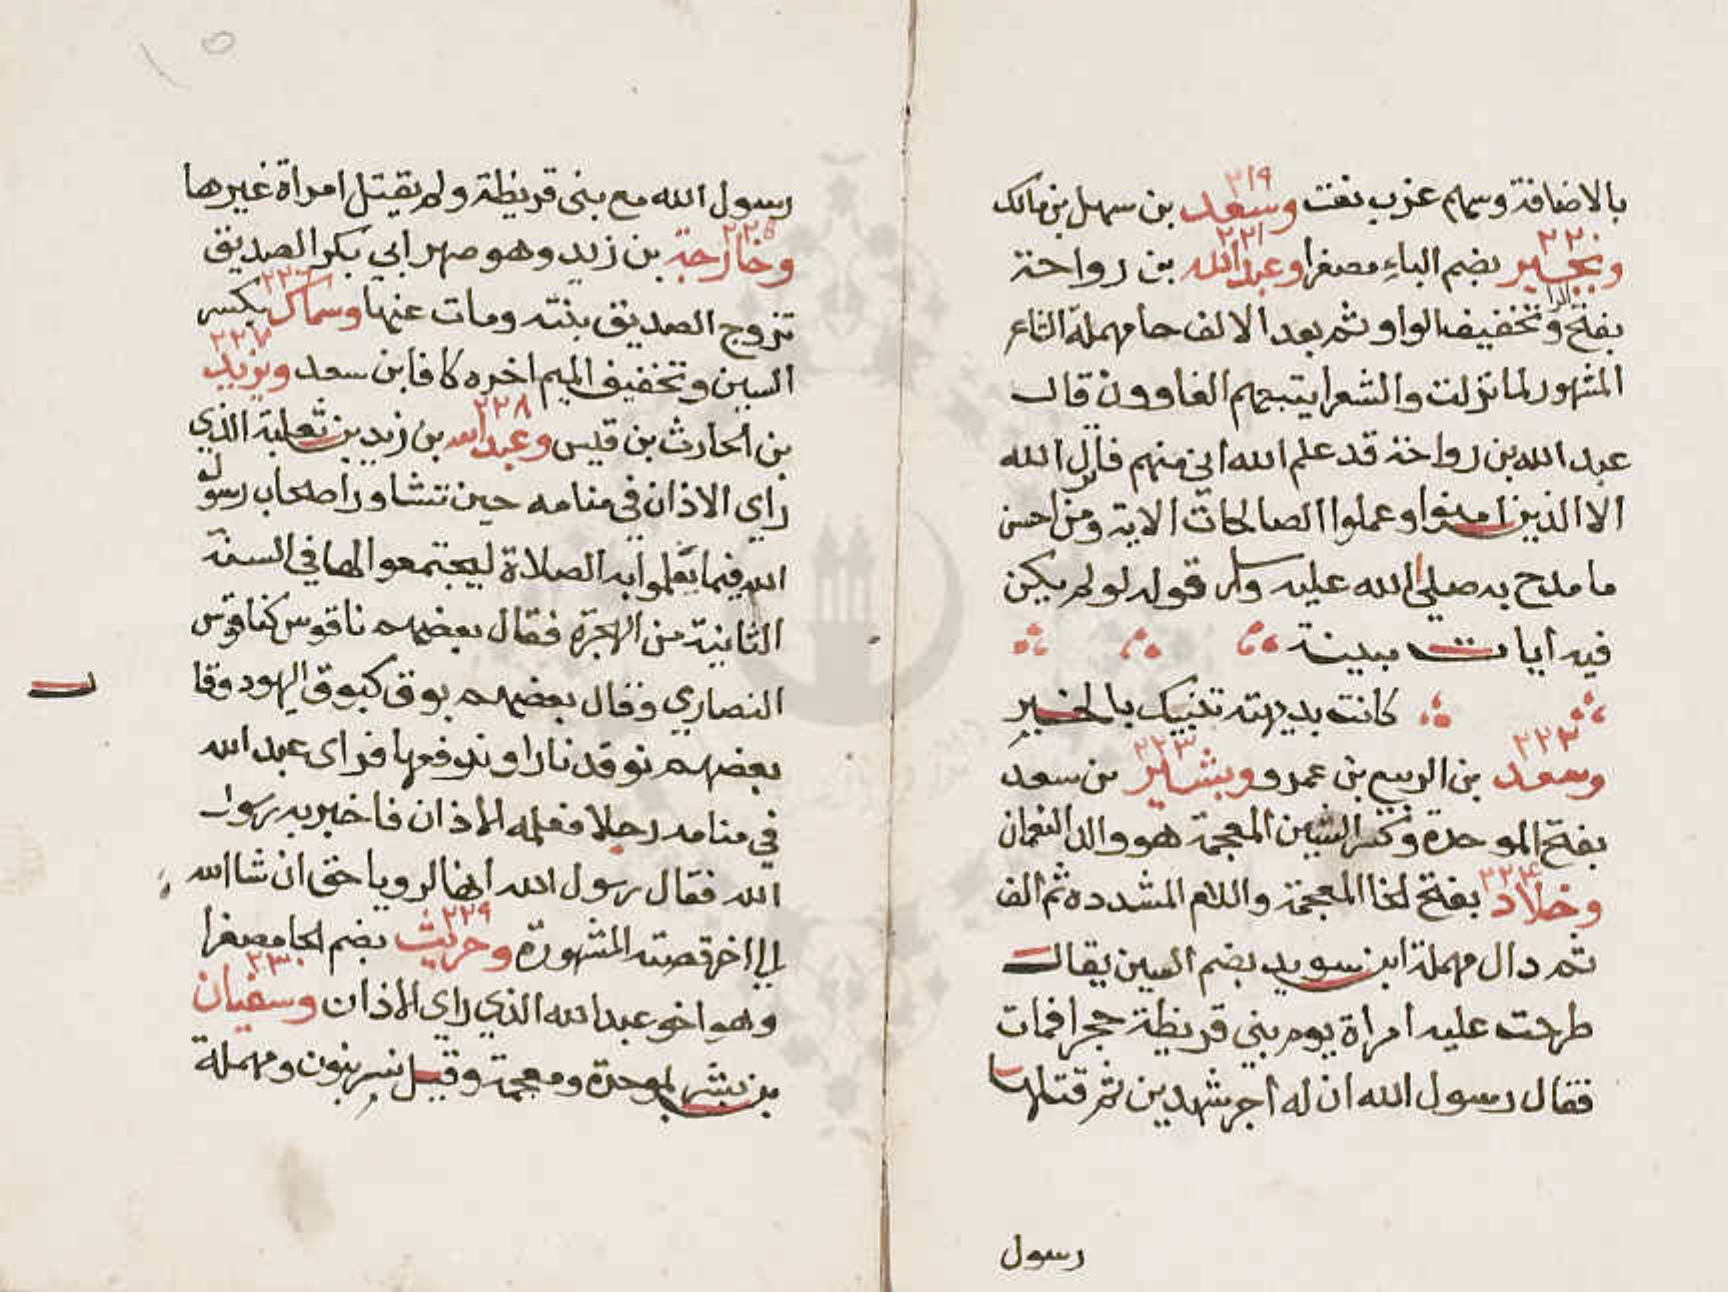 بالاضافة وسهم غرب نعت وسعد بن سهيل بن مالك
٢١٩
وبجير بضم الباء مصغرا وعبدالله بن رواحة
٢٢٠ ٢٢١
بفتح الرا وتخفيف الواو ثم بعد الالف حا مهملة الشاعر
المشهور لما نزلت والشعرا يتبعهم الغاوون قال
عبد الله بن رواحة قد علم الله اني منهم فانزل الله
الا الذين امنوا وعملوا الصالحات الاية ومن احسن
ما مدح به صلى الله عليه وسلم قوله لو لم يكن
فيه ايات مبينة
كانت بديهته تنبيك بالخبر
وسعد بن الربيع بن عمرو وبشير بن سعد
٢٢٢ ٢٢٣
بفتح الموحدة وكسر الشين المعجمة هو والد النعمان
وخلاد بفتح الخا المعجمة واللام المشدده ثم الف
٢٢٤
ثم دال مهملة ابن سويد بضم السين يقال
طرحت عليه امراة يوم بني قريظة حجرا فمات
فقال رسول الله ان له اجر شهدين ثم قتلها
رسول
رسول الله مع بني قريظة ولم يقتل امراة غيرها
وخارجة بن زيد وهو صهر ابي بكر الصديق
٢٢٥
تزوج الصديق بنته ومات عنها وسماك بكسر
السين وتخفيف الميم اخره كاف ابن سعد ويزيد
٢٢٧
بن الحارث بن قيس وعبدالله بن زيد بن ثعلبة الذي
٢٢٨
راي الاذان في منامه حين تشاور اصحاب رسول
الله فيما يعلموا به الصلاة ليجتمعوا لها في السنة
الثانية من الهجرة فقال بعضهم ناقوس كناقوس
النصاري وقال بعضهم بوق كبوق اليهود وقا
ل
بعضهم نوقد نارا ونرفعها فراى عبد الله
في منامه رجلا فعلمه الاذان فاخبر به رسول
الله فقال رسول الله انها لرويا حق ان شا الله
الى اخر قصته المشهورة وحريث بضم الحا مصغرا
٢٢٩
وهو اخو عبد الله الذي راي الاذان وسفيان
٢٣٠
بن بشر بموحدة ومعجمة وقيل نسر بنون ومهملة